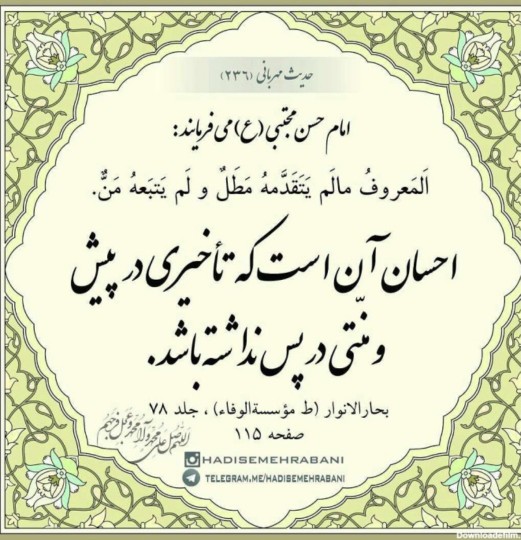 حدیث مهربانی (۲۳۶)
امام حسن مجتبی (ع) می فرمایند:
اَلمَعروفُ مالَم یَتَقَدَّمهُ مَطَلٌ و لَم یَتبَعهُ مَنٌّ.
احسان آن است که تأخیری در پیش
و منّتی در پس نداشته باشد.
بحارالانوار (ط مؤسسةالوفاء) ، جلد ۷۸
صفحه ۱۱۵
اللهم صل علی محمد و آل محمد و عجل فرجهم
HADISEMEHRABANI
TELEGRAM.ME/HADISEMEHRABANI
Downloadefilm.